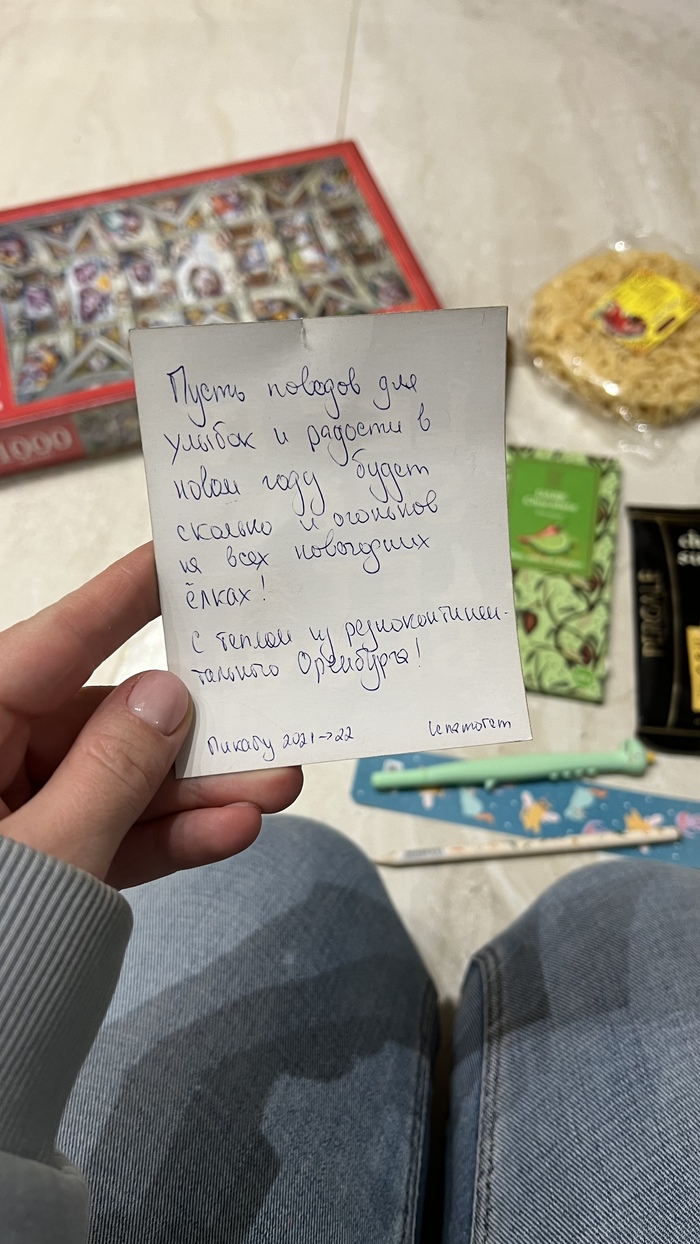 1000
Пусть поводов для
улыбок и радости в
новом году будет
сколько и огоньков
на всех новогодних
ёлках!
С теплом из резкоконтинен-
тального Оренбурга!
Пикабу 2021→22